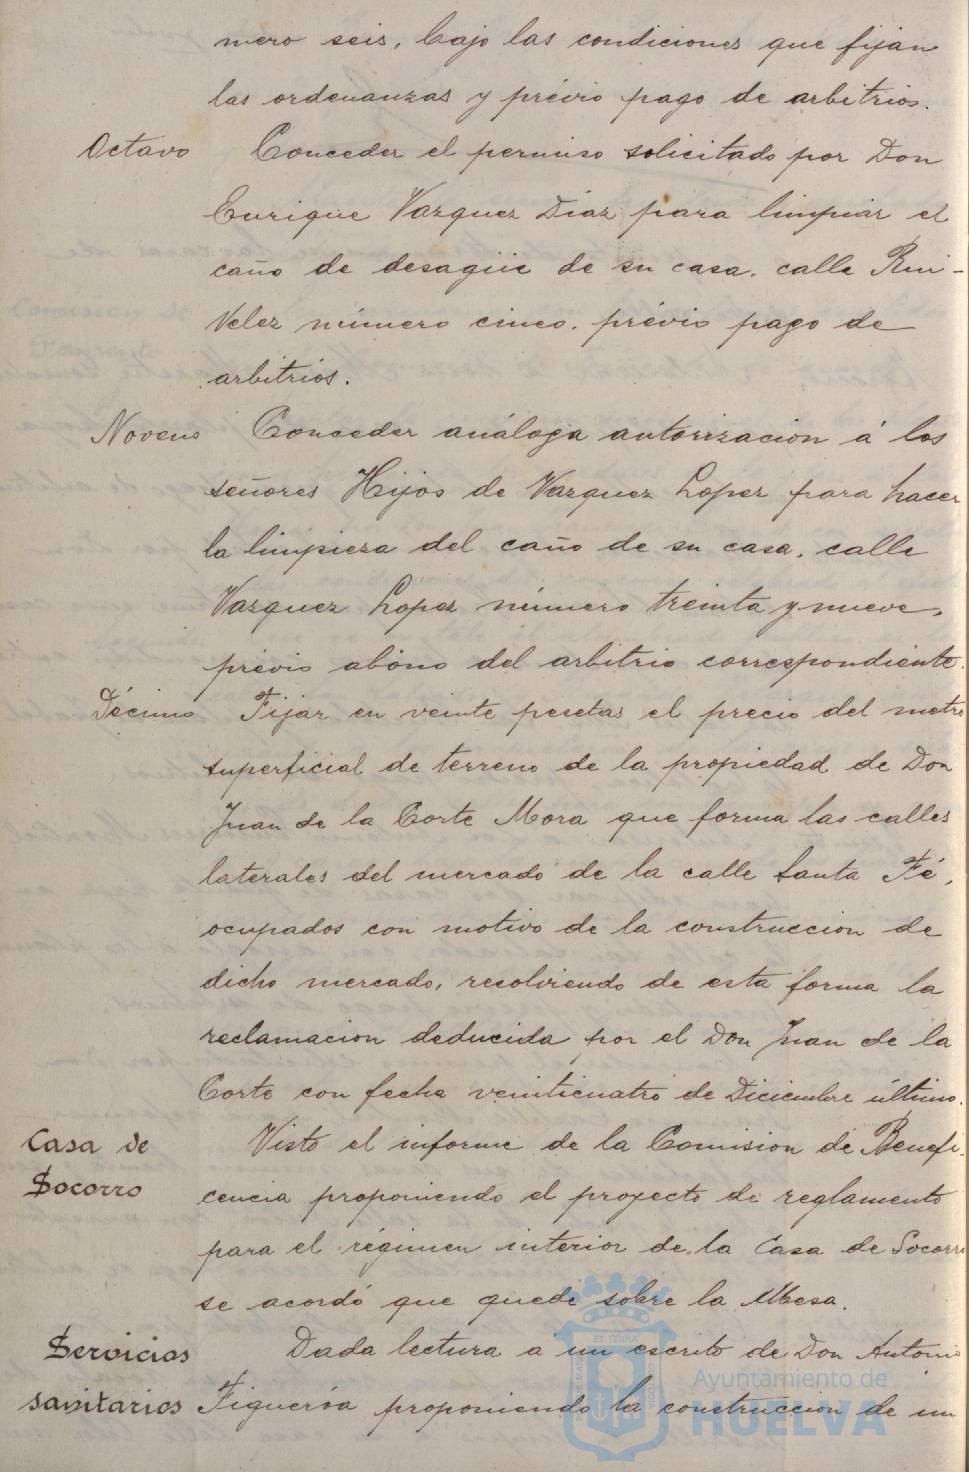 mero seis, bajo las condiciones que fijan
las ordenanzas y prévio pago de arbitrios.
Octavo Conceder el permiso solicitado por Don
Enrique Vazquez Diaz para limpiar el
caño de desagüe de su casa, calle Rui-
Velez número cinco, prévio pago de
arbitrios.
Noveno Conceder análoga autorizacion á los
señores Hijos de Vazquez Lopez para hacer
la limpieza del caño de su casa, calle
Vazquez Lopez número treinta y nueve,
prévio abono del arbitrio correspondiente.
Décimo Fijar en veinte pesetas el precio del metro
superficial de terreno de la propiedad de Don
Juan de la Corte Mora que forma las calles
laterales del mercado de la calle Santa Fé,
ocupados con motivo de la construccion de
dicho mercado, resolviendo de esta forma la
reclamacion deducida por el Don Juan de la
Corte con fecha veinticuatro de Diciembre último.
Casa de Visto el informe de la Comision de Benefi-
Socorro cencia proponiendo el proyecto de reglamento
para el régimen interior de la Casa de Socorro
se acordó que quede sobre la Mesa.
Servicios Dada lectura á un escrito de Don Antonio
sanitarios Figueróa proponiendo la construccion de un
Ayuntamiento de
HUELVA